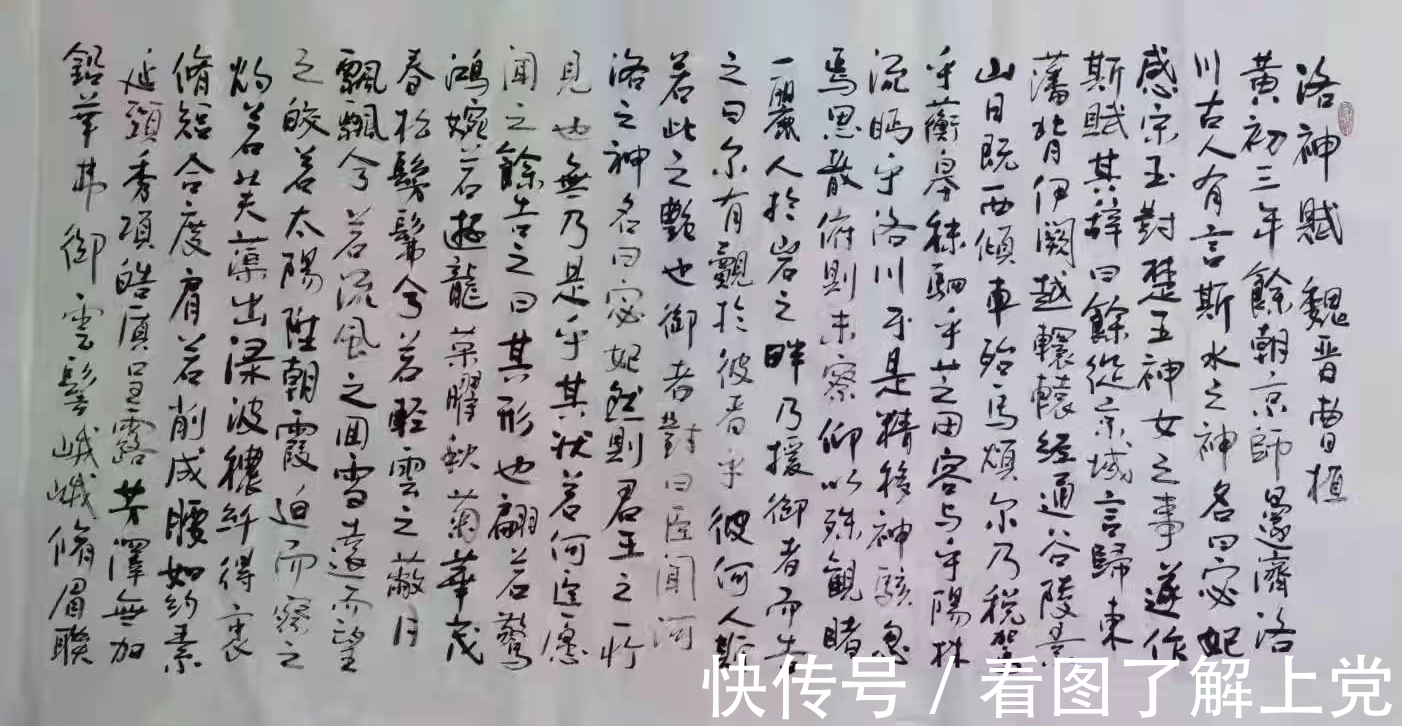 洛神賦 魏晋曹植
黃初三年餘朝京師還濟洛
川古人有言斯水之神名曰宓妃
感宗玉對楚王神女之事遂作
斯賦其辞曰餘從京域言歸東
藩背伊闕越轘轅經通谷陵景
山日既西傾車殆馬煩尔乃税駕
乎蘅皋秣駟乎芝田容与乎陽林
流眄乎洛川于是精移神駭忽
焉思散俯則未察仰以殊觀睹
一麗人於岩之畔乃援御者而告
之曰尔有覿於彼者乎彼何人斯
若此之艷也御者對曰臣聞河
洛之神名曰宓妃然則君王之所
見也無乃是乎其状若何臣愿
聞之餘告之曰其形也翩若驚
鴻婉若遊龍荣曜秋菊華茂
春松髣髴兮若輕雲之蔽月
飄飄兮若流風之回雪遠而望
之皎若太陽陞朝霞迫而察之
灼若芙蕖出渌波穠纤得衷
脩短合度肩若削成腰如約素
延頸秀項皓質呈露芳澤無加
鉛華弗御雲髻峨峨脩眉聯
快传号/看图了解上党